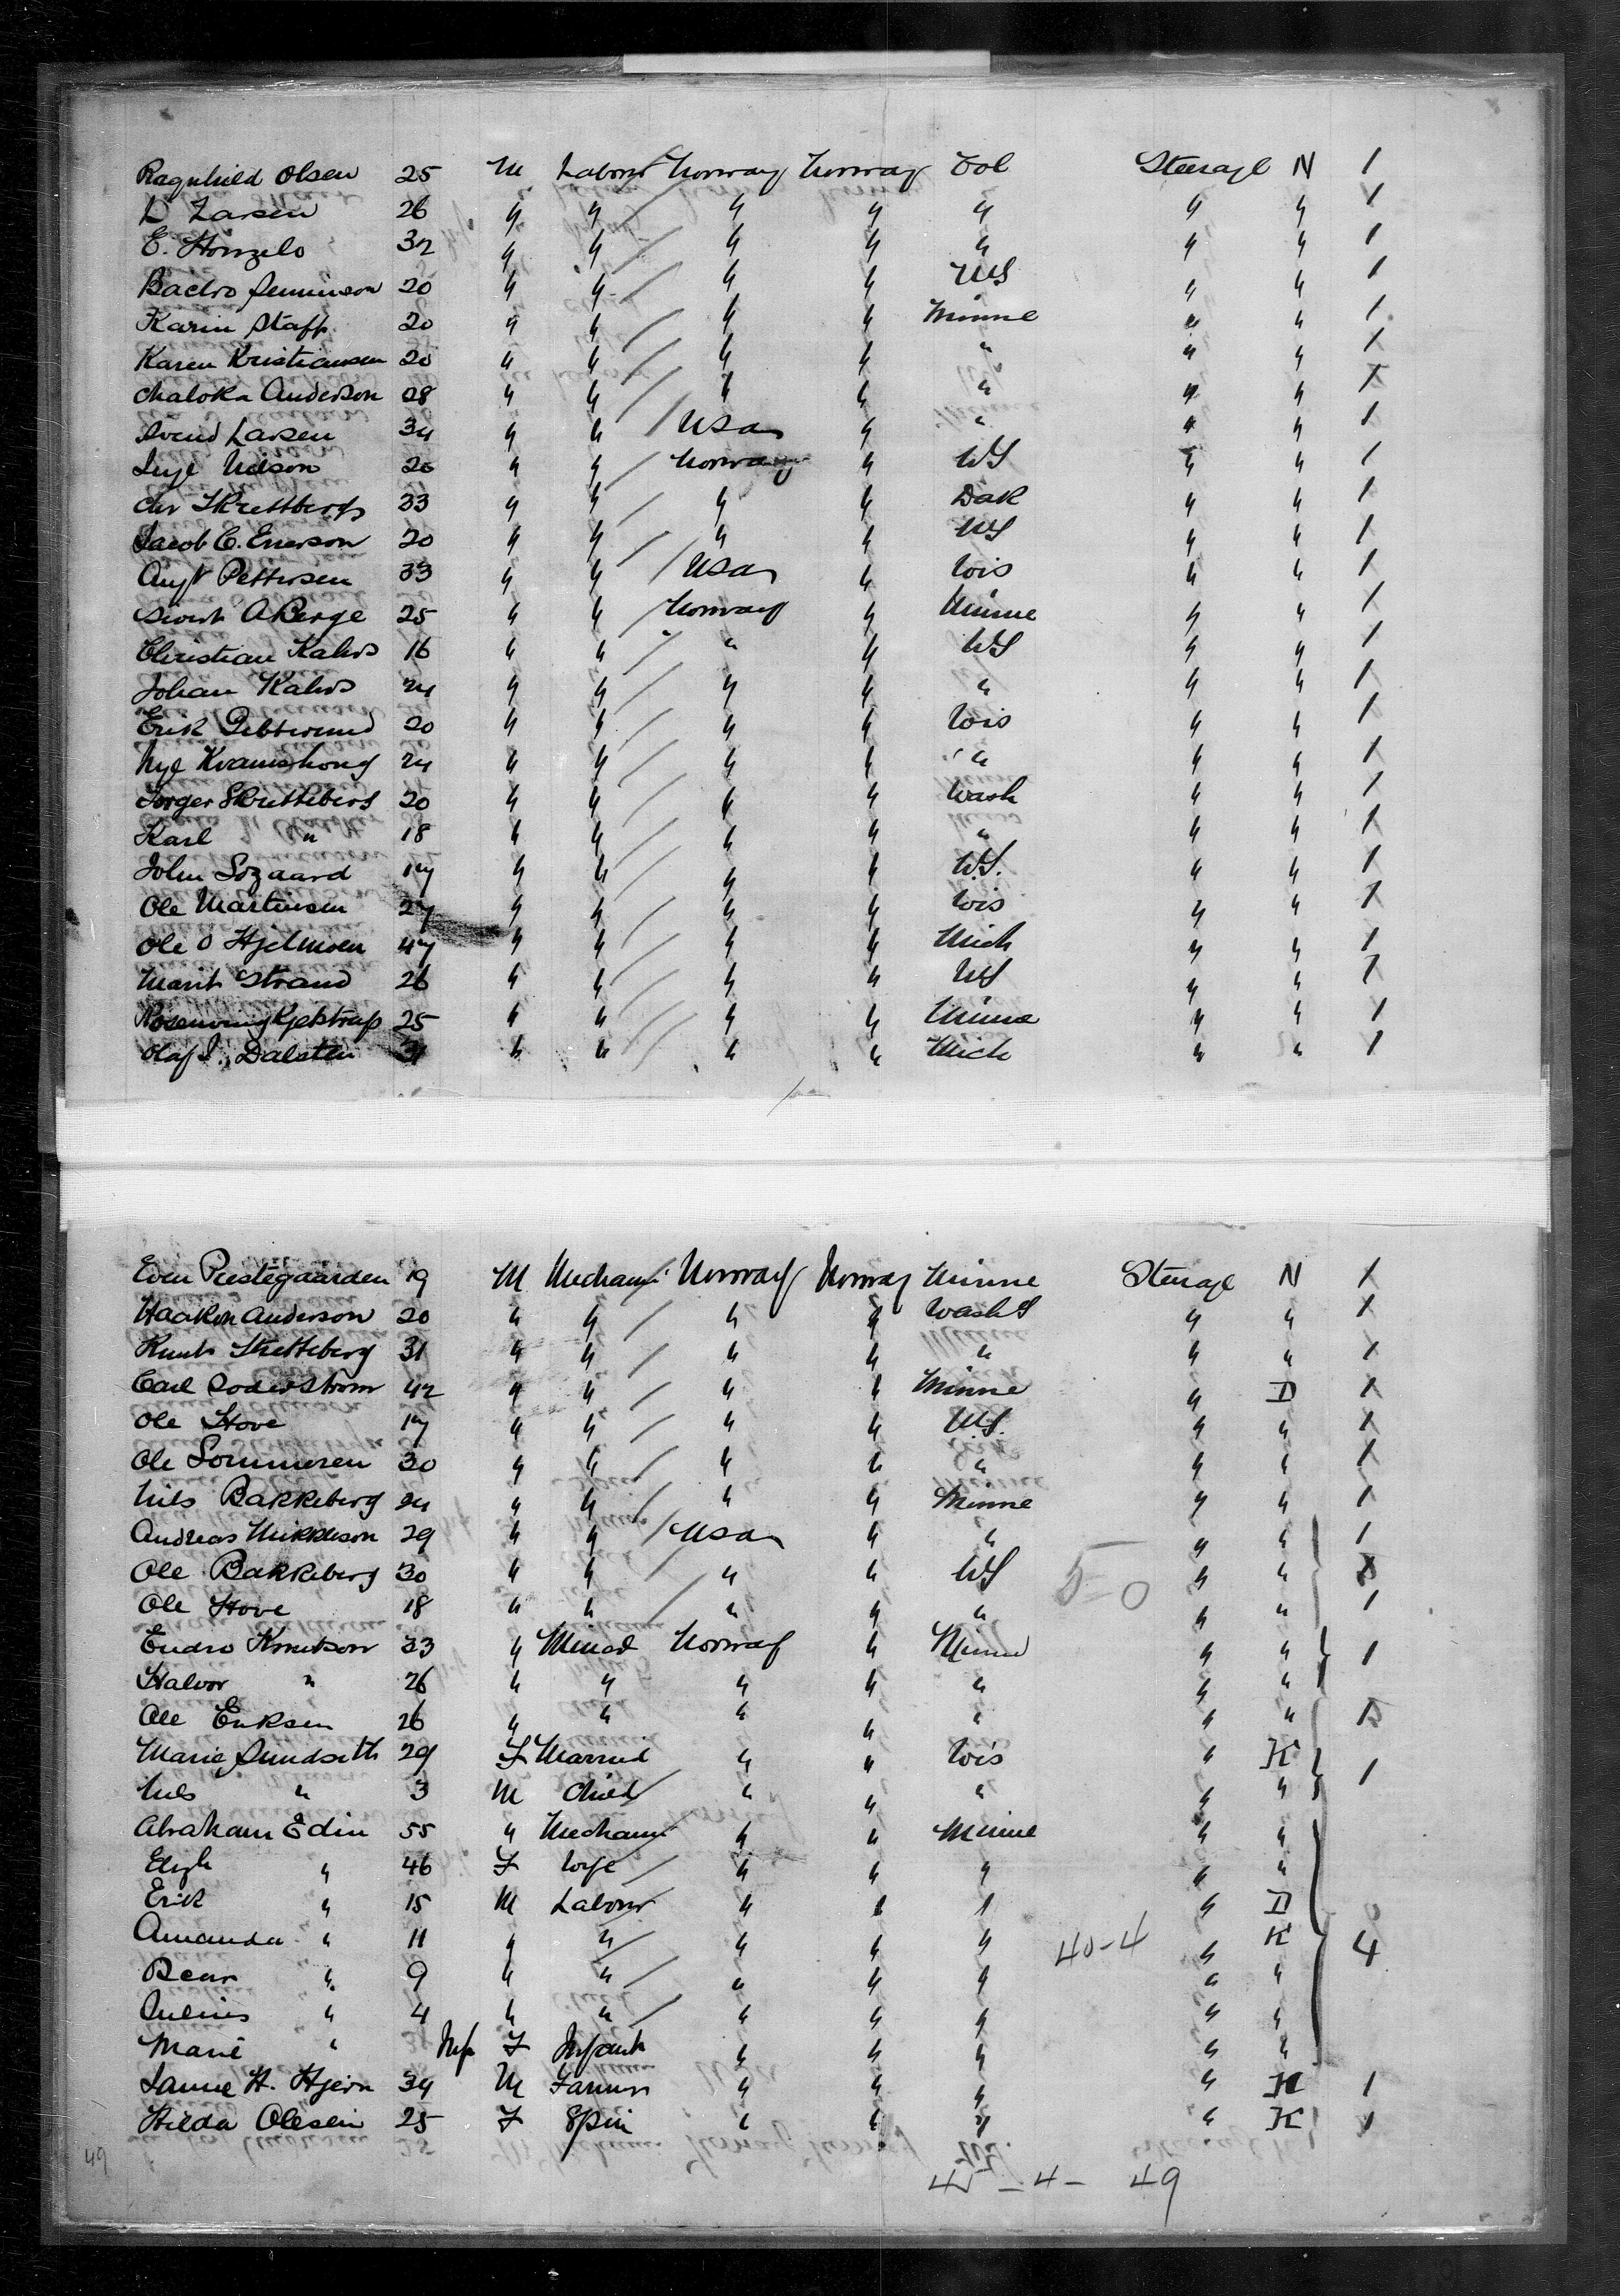 Ragnhild Olsen 25 M Labour Norway Norway Col Steerage N 1
L Larsen 26 " " " " " " " 1
E. Hongelo 32 " " " " " " " 1
20 " " " " WS " " 1
Karin Staff 20 " " " " Minne " " 1
Karen Kristiansen 20 " " " " " " " 1
Anderson 28 " " " " " " " 1
Svend Larsen 34 " " USA " " " " 1
Inge Nilson 20 " " Norway " WS " " 1
Chr Skrettberg 33 " " " " Dak " " 1
Jacob C. Enerson 20 " " " " WS " " 1
Aug Pettersen 33 " " USA " Wis " " 1
Sivert A Berge 25 " " Norway " Minne " " 1
Christian Kahrs 16 " " " " WS " " 1
Johan Kahrs 24 " " " " " " " 1
Erik 20 " " " " Wis " " 1
24 " " " " " " " 1
Torger Skretteberg 20 " " " " Wash " " 1
Karl " 18 " " " " " " " 1
John Sogaard 17 " " " " W.S. " " 1
Ole Martinsen 27 " " " " Wis " " 1
Ole O Hjelmoen 47 " " " " Mich " " 1
Marit Strand 26 " " " " WS " " 1
25 " " " " Minne " " 1
Olaf I. Dalsten 31 " " " " Mich " " 1
Even Prestegaarden 19 M Mechani Norway Norway Minne Steerage N 1
Haakon Anderson 20 " " " " Wash S " " 1
Knut Skretteberg 31 " " " " " " " 1
Carl Soderstrom 42 " " " " Minne " D 1
Ole Hove 17 " " " " W.S. " " 1
Ole Sommeren 30 " " " " " " " 1
Nils Bakkeberg 24 " " " " Minne " " 1
Andreas Mikkelson 29 " " USA " " " " 1
Ole Bakkeberg 30 " " " " WS 5-0 " " 1
Ole Hove 18 " " " " " " " 1
Endre Knutson 33 " Miner Norway " Minne " " 1
Halvor " 26 " " " " " " "
Ole Eriksen 26 " " " " " " " 1
Marie Sundseth 29 F Married " " Wis " K 1
Nils " 3 M Child " " " " "
Abraham Edin 55 " Mechani " " Minne " "
" 46 F Wife " " " " "
Erik " 15 M Labour " " " " D
Amanda " 11 " " " " " 40-4 " K 4
" 9 " " " " " " "
Julius " 4 " " " " " " "
Marie " Inf F Infant " " " " "
H. Hjern 34 M Farmer " " " " K 1
Hilda Olesen 25 F Spin " " " " K 1
49
45 - 4 - 49